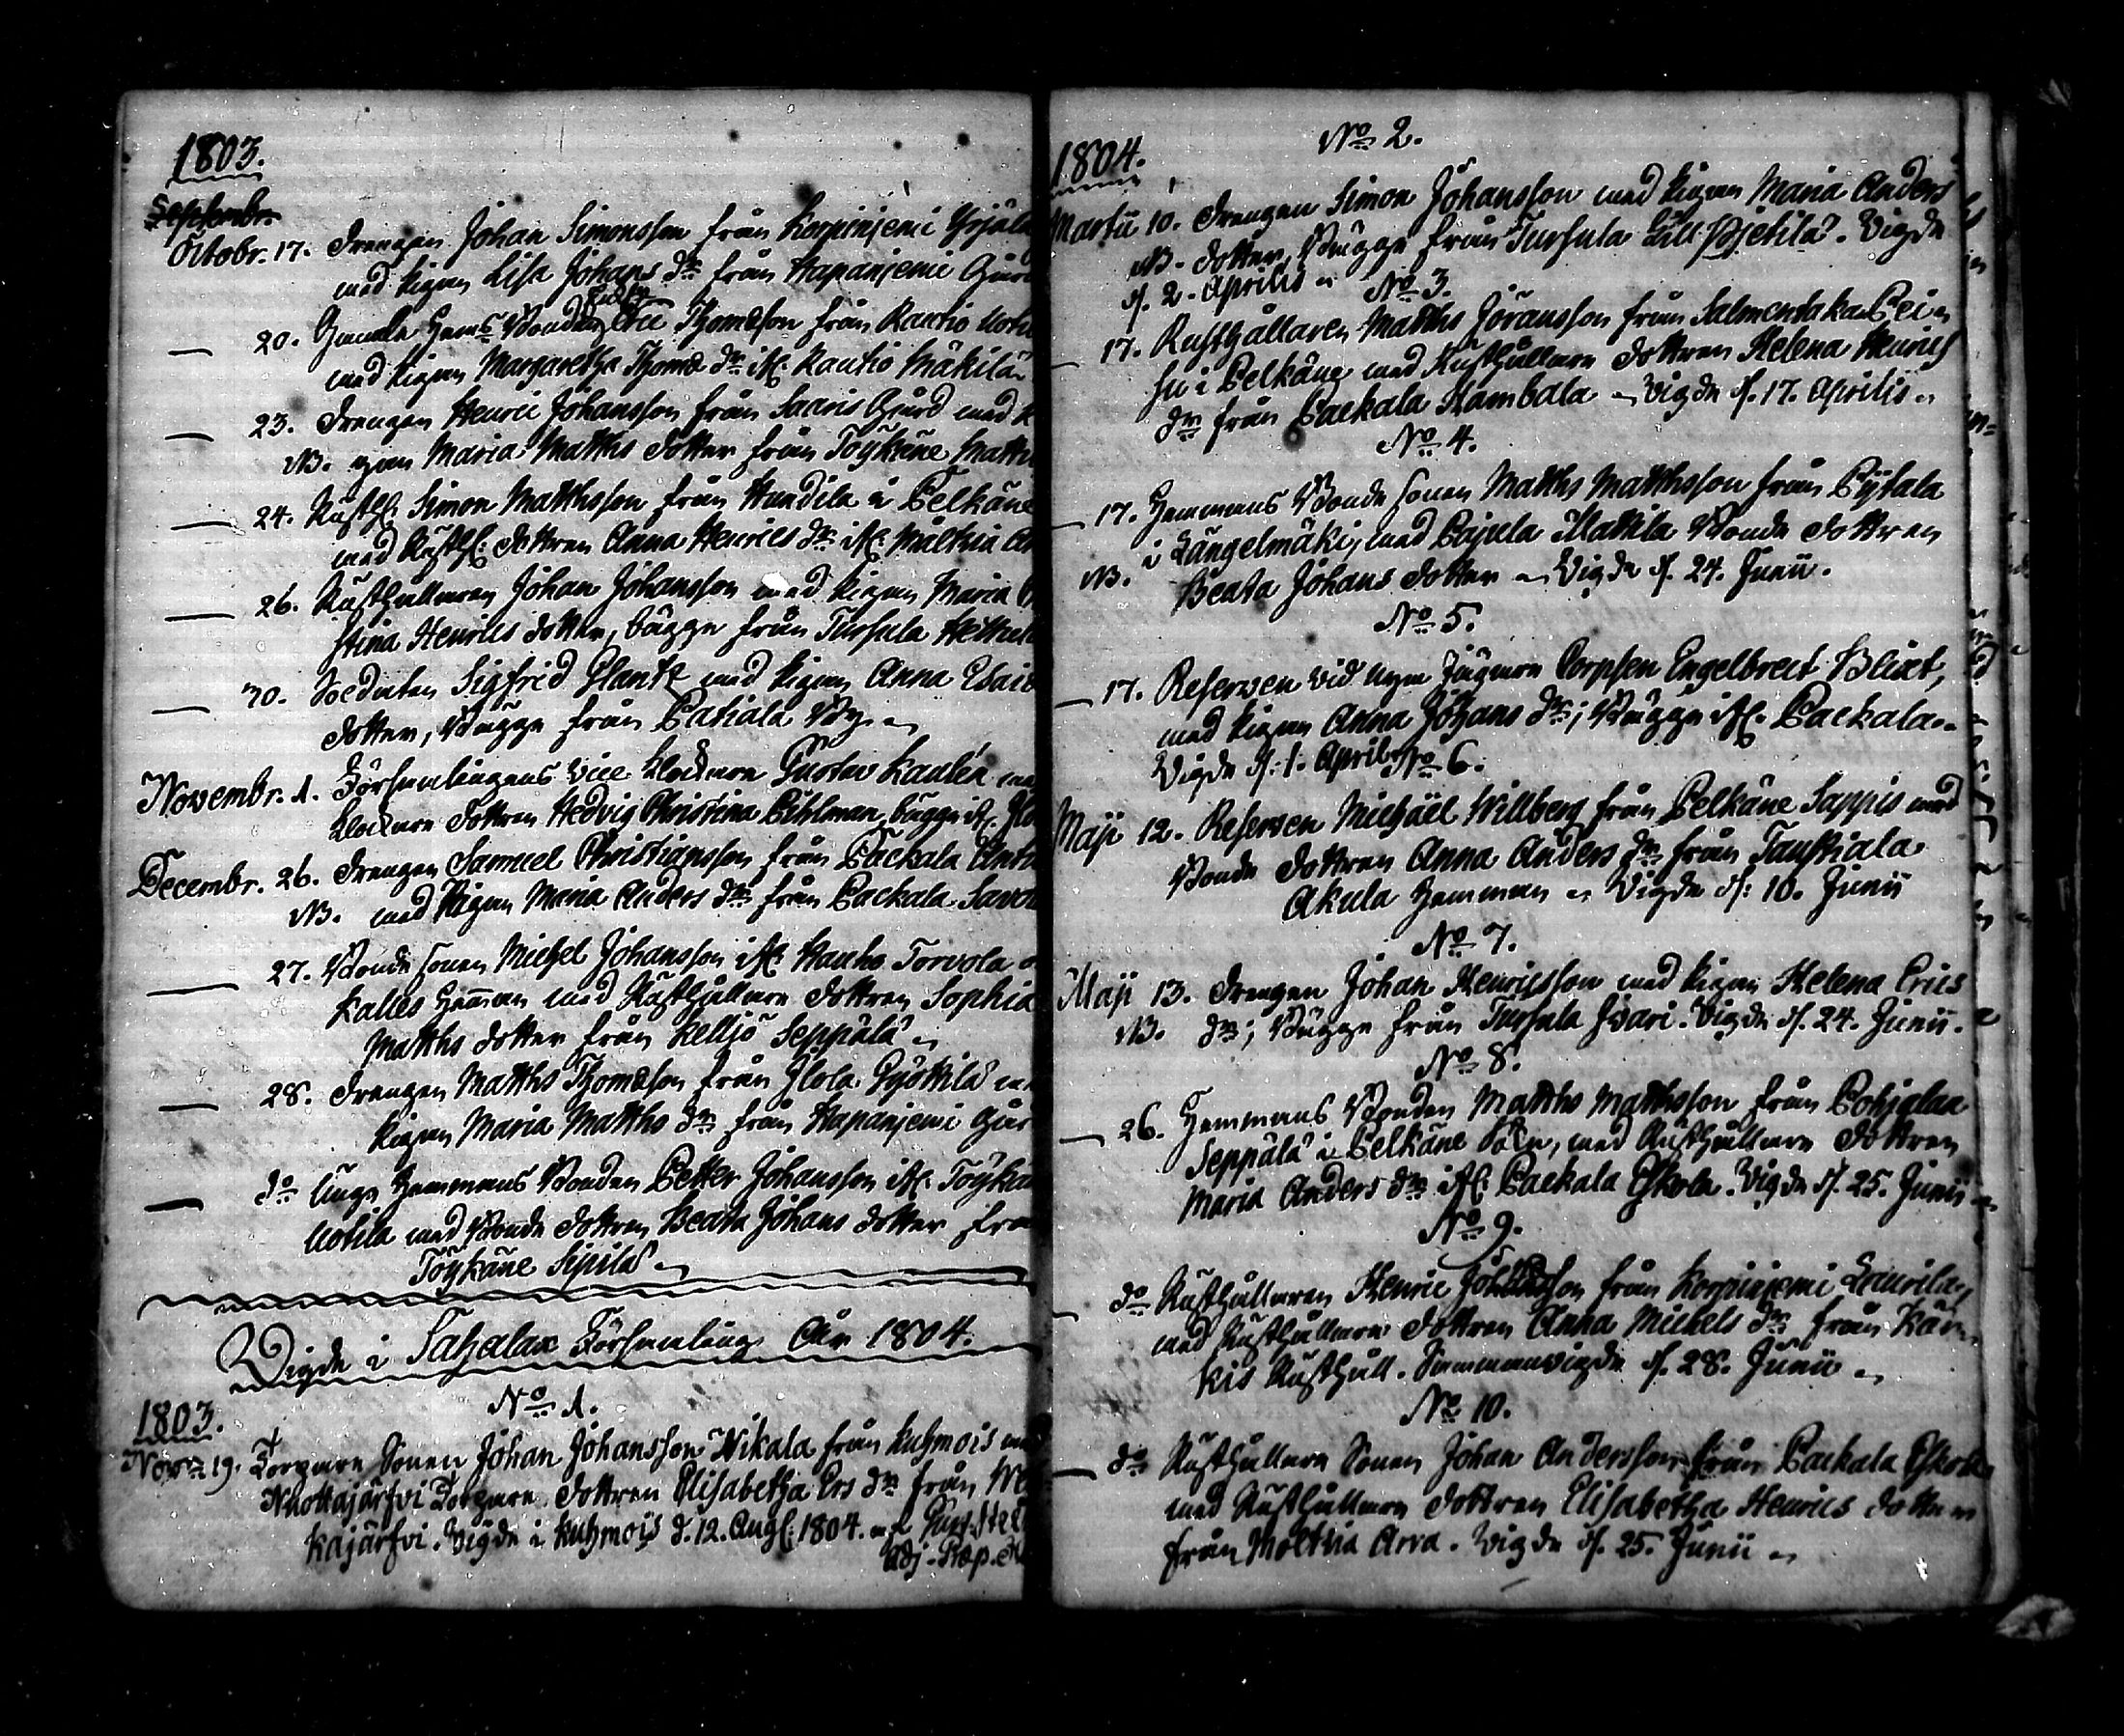 1803.
Septembr.
Octobr. 17. Drengen Johan Simonsson från Korpiniemi Yrjälä
med Pigan Lisa Johans dr från Hapaniemi Gård
20. Gamle Hems Bonden Eric Thomæson från Rautio
med Pigan Margaretha Thomæ dr ifr. Rautio Mäkilä
23. Drengen Henric Johansson från Saaris Gård med
NB. gan Maria Matths dotter från Töykäne
24. Rusth. Simon Matthsson från Hundila i Pelkäne
med Rusth. dottren Anna Henrics dr ifr. Måltia
26. Rusthållaren Johan Johansson med Pigan Maria
stina Henrics dotter, bägge från Tursula
30. Soldaten Sigfrid Glantz med Pigan Anna Esaie
dotter, Bägge från Patiala By
Novembr. 1. Församlingens Vice Klockare Gustav Kaulén
Klockare dottren Hedvig Christina Pihlman, bägge ifr.
Decembr. 26. Drengen Samuel Christiansson från Packala
NB. med Pigan Maria Anders dr från Packala
27. Bonde sonen Michel Johansson ifr. Hauho Torvola
Kalles Heman med Rusthållare dottren Sophia
Matths dotter från Kelljo Seppälä
28. Drengen Matths Thomæson från Ilola
Pigan Maria Matths dr från Hapaniemi
do unge Hemmans Bonden Petter Johansson ifr.
Uotila med Bonde dottren Beata Johans dotter
Töykäne Sipilä
Vigde i Sahalax Församling År 1804.
No 1.
1803.
Novr 19. Torpare Sonen Johan Johansson Wikala från Kuhmois
Torpare dottren Elisabetha Ers dr från
kajärfvi. Vigde i Kuhmois d. 12. Aug. 1804.
Adj.
1804.
No 2.
Martii 10. Drengen Simon Johansson med Pigan Maria Anders
NB. dotter, Bägge från Tursula Lill Pjetilä. Vigde
d. 2. Aprilis
No 3.
17. Rusthållaren Matths Jöransson från Salmentaka Pei
su i Pelkäne med Rusthållare dottren Helena Henrics
dr från Packala Kambala Vigde d. 17. Aprilis
No 4.
17. Hemmans Bonde sonen Matths Matthsson från Pytala
i Längelmäki, med Pajula Mattila Bonde dottren
NB. Beata Johans dotter Vigde d. 24. Junii.
No 5.
17. Reserven vid nya Jägare Corpsen Engelbrect Blixt,
med Pigan Anna Johans dr; Bägge ifr. Packala
Vigde d. 1. April.
No 6.
Maji 12. Reserven Michäel Willberg från Pelkäne Sappis med
Bonde dottren Anna Anders dr från Taustiala
Akula Hemman Vigde d: 10. Junii
No 7.
Maji 13. Drengen Johan Henricsson med Pigan Helena Erics
NB. dr; Bägge från Tursula Isari. Vigde d. 24. Junii.
No 8.
26. Hemmans Bonden Matths Matthsson från Pohjalax
Seppälä i Pelkäne Sokn, med Rusthållare dottren
Maria Anders dr ifr. Packala Eskola. Vigde d. 25. Junii
No 9.
do Rusthållaren Henric från Korpiniemi Laurila,
med Rusthållare dottren Anna Michels dr från Kär
kis Rusthåll. Sammanvigde d. 28. Junii
No 10.
do Rusthållare Sonen Johan Andersson från Packala Eskola
med Rusthållare dottren Elisabetha Henrics dotter
från Moltia Arva. Vigde d. 25. Junii